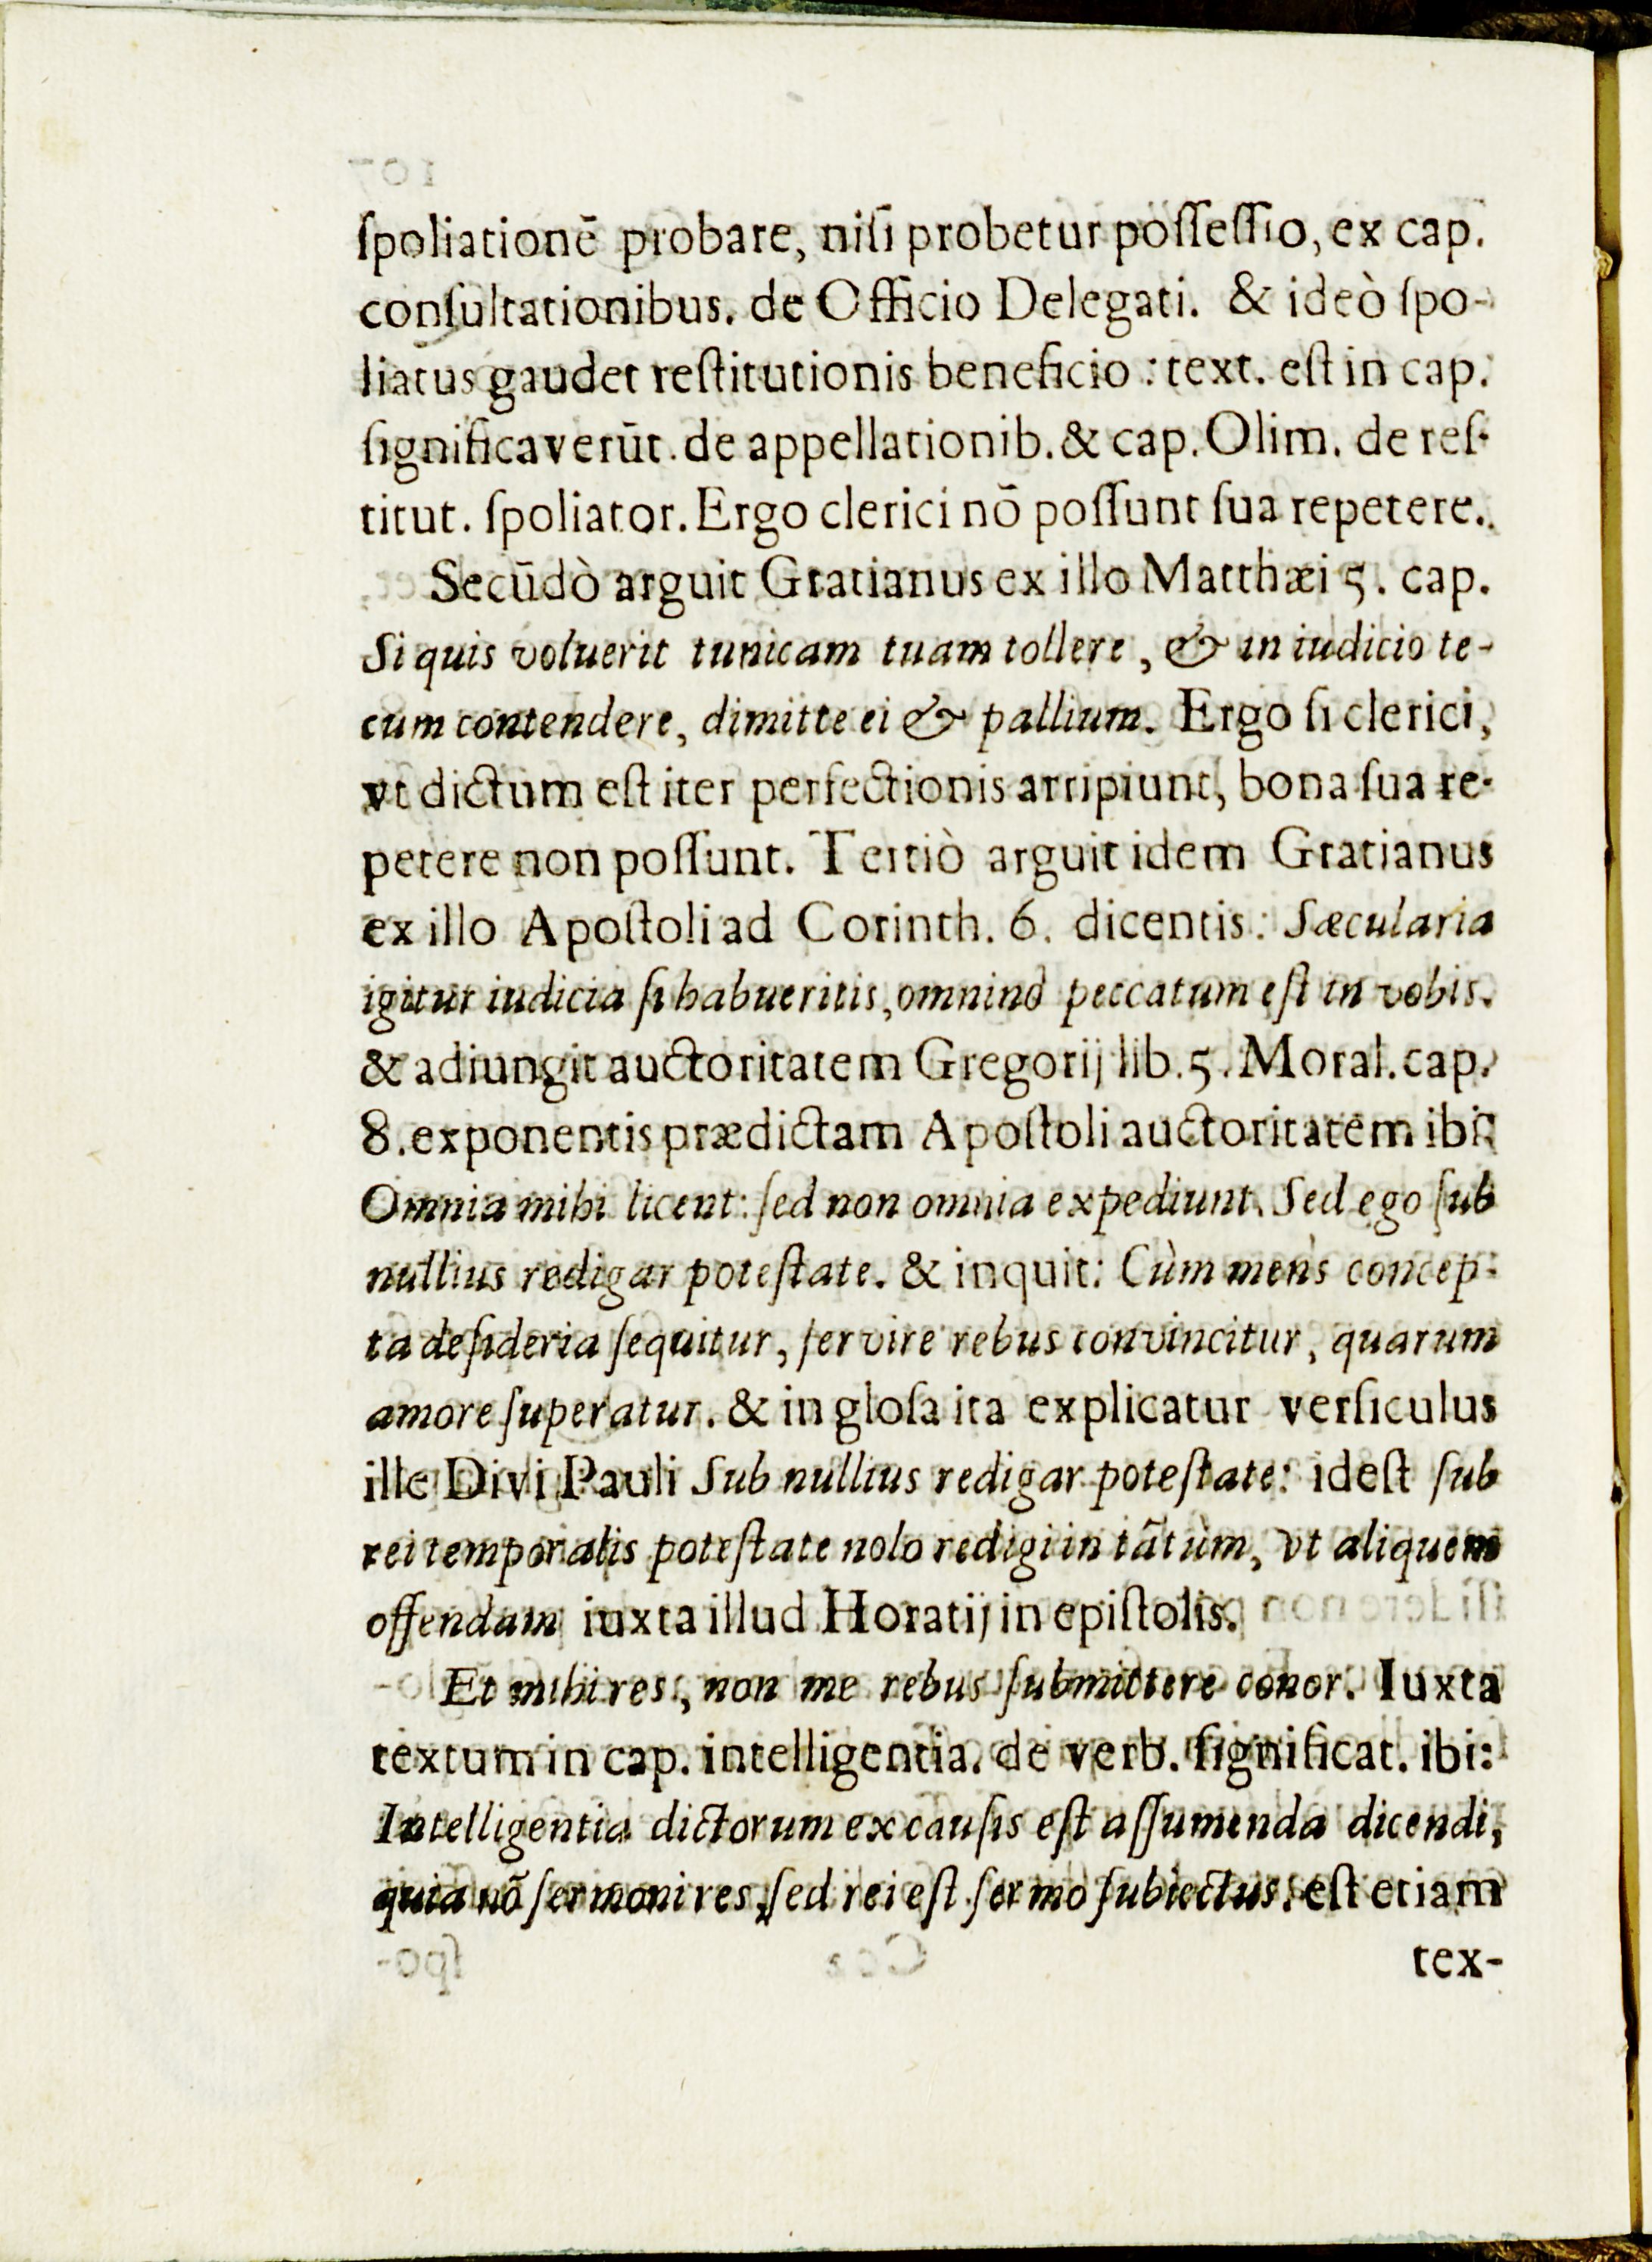 ſpoliationē probare, niſi probetur poſſeſſio, ex cap.
conſultationibus. de Officio Delegati. & ideò ſpo-
liatus gaudet reſtitutionis beneficio : text. eſt in cap.
ſignificaverūt. de appellationib. & cap. Olim. de reſ-
titut. ſpoliator. Ergo clerici nō poſſunt ſua repetere.
Secūdò arguit Gratianus ex illo Matthæi 5. cap.
Si quis voluerit tunicam tuam tollere, & in iudicio te-
cum contendere, dimitte ei & pallium. Ergo ſi clerici,
vt dictum eſt iter perfectionis arripiunt, bona ſua re-
petere non poſſunt. Tertiò arguit idem Gratianus
ex illo Apoſtoli ad Corinth. 6. dicentis: Sæcularia
igitur iudicia ſi habueritis, omninò peccatum eſt in vobis.
& adiungit auctoritatem Gregorij lib. 5. Moral. cap.
8. exponentis prædictam Apoſtoli auctoritatem ibi:
Omnia mihi licent: ſed non omnia expediunt. Sed ego ſub
nullius redigar poteſtate. & inquit: Cùm mens concep-
ta deſideria ſequitur, ſervire rebus convincitur, quarum
amore ſuperatur. & in gloſa ita explicatur verſiculus
ille Divi Pauli Sub nullius redigar poteſtate: ideſt ſub
rei temporalis poteſtate nolo redigi in tātùm, vt aliquem
offendam iuxta illud Horatij in epiſtolis.
Et mihi res, non me rebus ſubmittere conor. Iuxta
textum in cap. intelligentia. de verb. ſignificat. ibi:
Intelligentia dictorum ex cauſis eſt aſſumenda dicendi,
quia nō ſermoni res, ſed rei eſt ſermo ſubiectus. eſt etiam
tex-